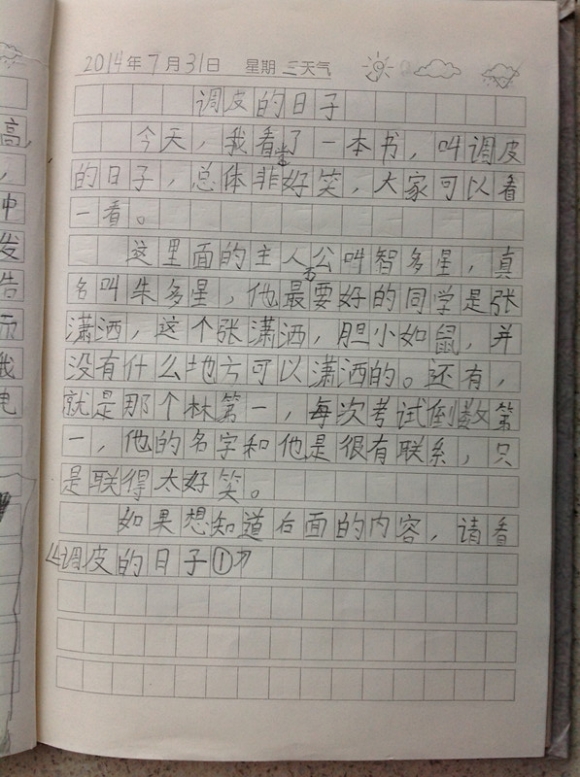 2014年7月31日 星期三天气
调皮的日子
今天，我看了一本书，叫调皮
的日子，总体非常好笑，大家可以看
一看。
这里面的主人公叫智多星，真
名叫朱多星，他最要好的同学是张
潇洒，这个张潇洒，胆小如鼠，并
没有什么地方可以潇洒的。还有，
就是那个林第一，每次考试倒数第
一，他的名字和他是很有联系，只
是联得太好笑。
如果想知道后面的内容，请看
《调皮的日子①》